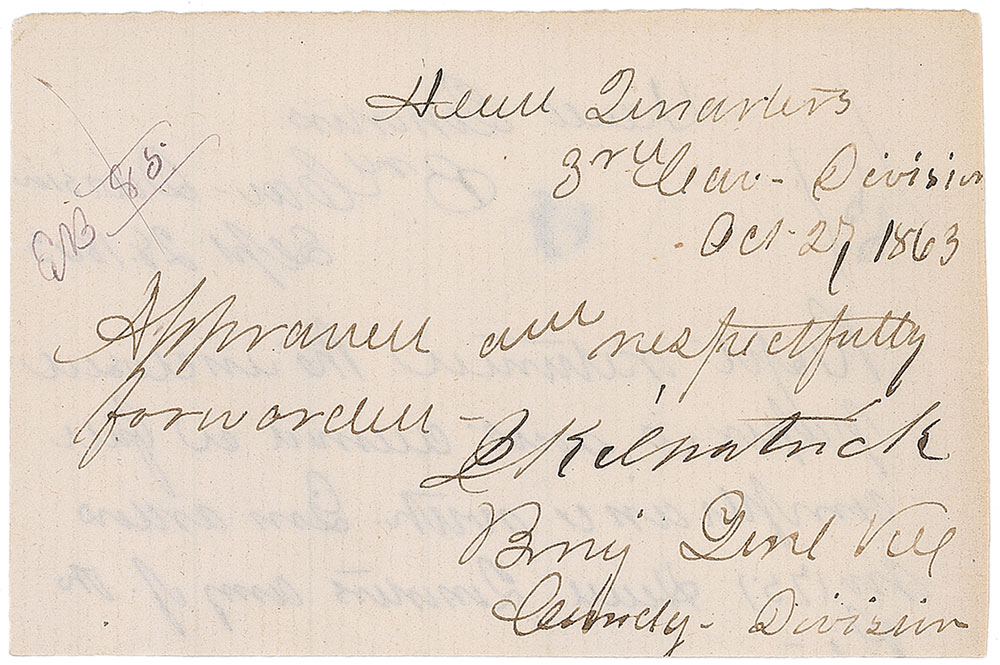 Head Quarters
3rd Cav- Division
Oct 27, 1863
Approved and respectfully
forwarded-
Kilpatrick
Brig Genl Vol
Comdg- Division